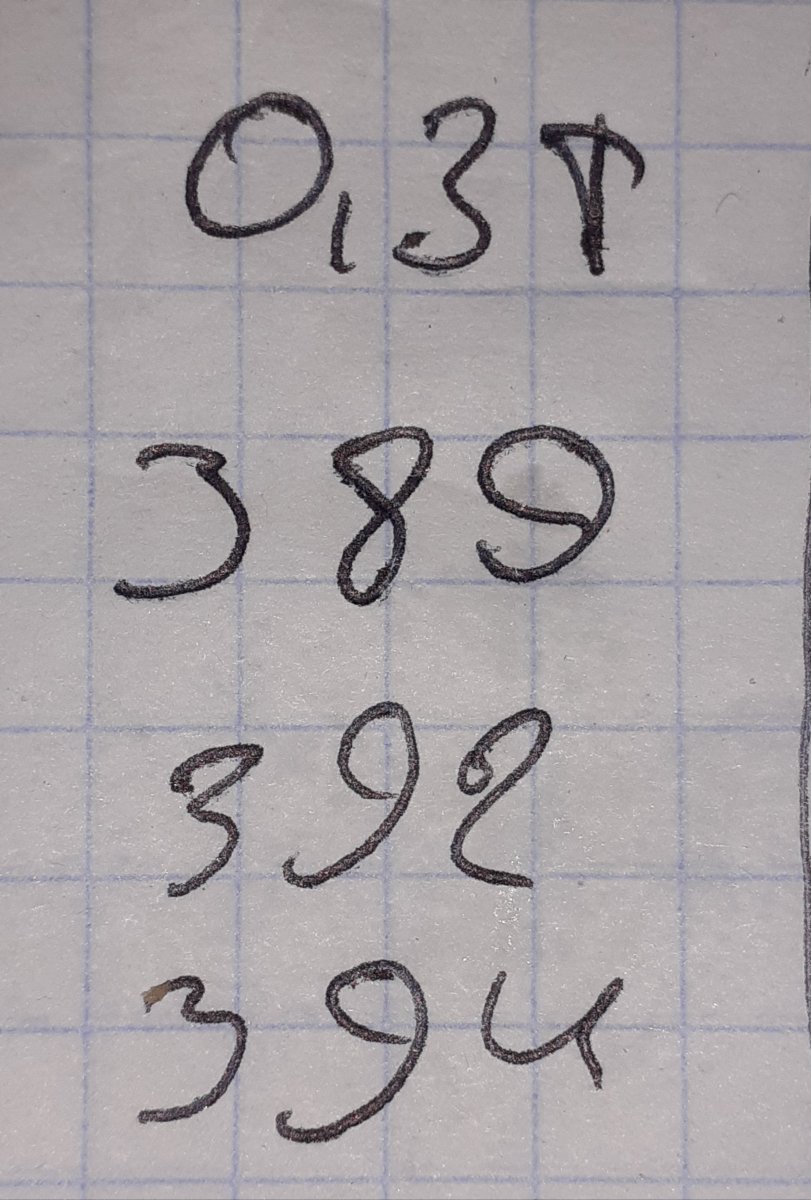 0,3т
389
392
394